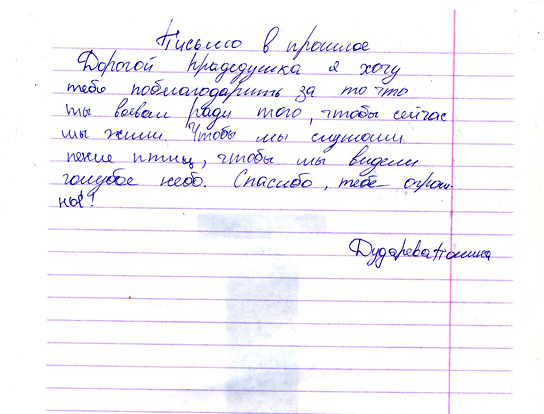 Письмо в прошлое
Дорогой прадедушка я хочу
тебе поблагодарить за то что
ты воевал ради того, чтобы сейчас
мы жили. Чтобы мы слушали
пение птиц, чтобы мы видели
голубое небо. Спасибо, тебе огром-
ное!
Дударева Полина